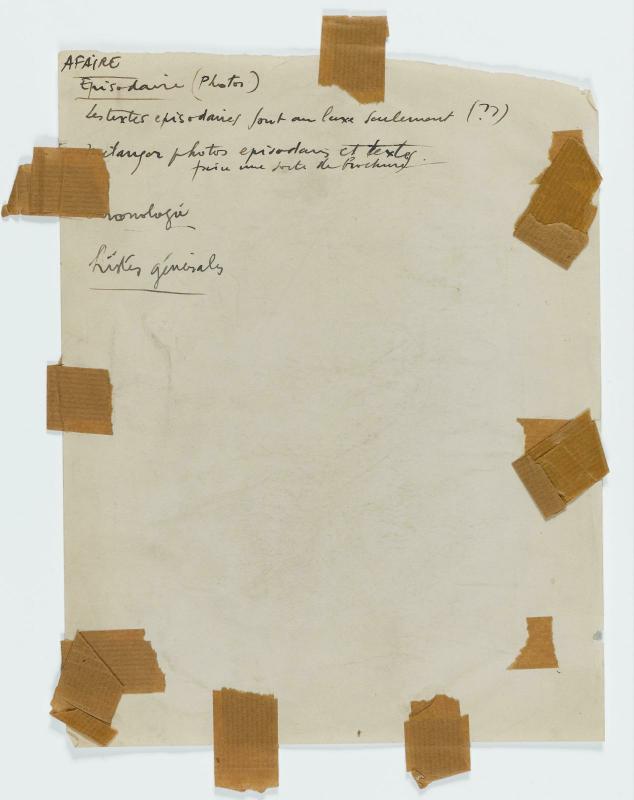 AFAIRE
Episodaire (Photos)
Les textes episodaires sont au luxe seulement (??)
mélanger photos episodaires et textes
faire une sorte de brochure.
ronologie
Listes générales